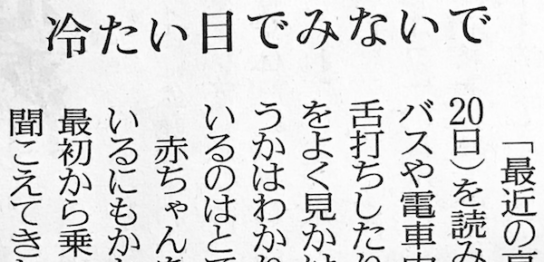 冷たい目でみないで
「最近の
20日）を読み
バスや電車内
舌打ちしたり
をよく見かけ
うかはわかり
いるのはとて
赤ちゃんを
いるにもかか
最初から乗
聞こえてきし